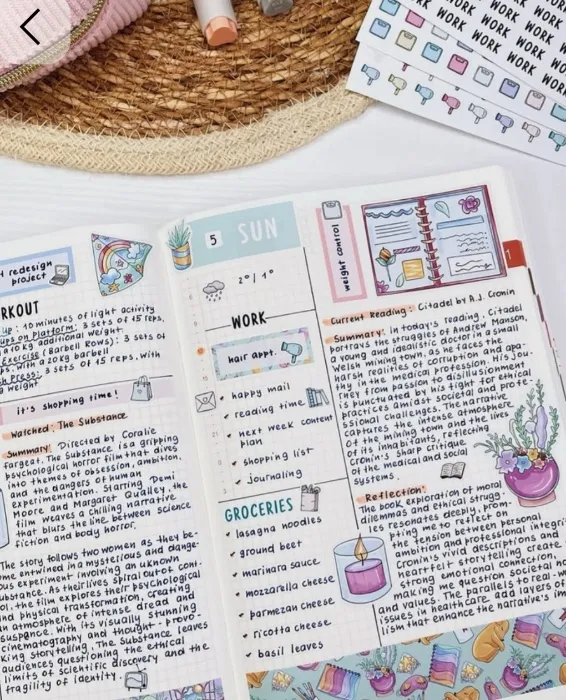 WORK WORK WORK
WORK WORK WORK WORK
WORK WORK WORK WORK
WORK WORK WORK
redesign
project
RKOUT
up: 10 minutes of light activity
ups on Platform: 3 sets of 15 reps,
a 10 kg additional weight
Exercise (Barbell Rows): 3 sets of
ps, with 20kg barbell
h Press: 3 sets of 15 reps, with
weight
it's shopping time!
Watched: The Substance
Summary: Directed by Coralie
Fargeat, The Substance is a gripping
psychological horror film that dives
into themes of obsession, ambition,
and the dangers of human
experimentation. Starring Demi
Moore and Margaret Qualley, the
film weaves a chilling narrative
that blurs the line between science
fiction and body horror.
The story follows two women as they be-
me entwined in a mysterious and dange-
ous experiment involving an uknown
ubstance. As their lives spiral out of cont-
ol, the film explores their psychological
nd physical transformation, creating
an atmosphere of intense dread and
suspance. With its visually stunning
cinematography and thought-provo-
king storytelling, The Substance leaves
audiences questioning the ethical
limits of scientific discovery and the
fragility of identity.
5 SUN
2° / 1°
WORK
hair appt.
happy mail
reading time
next week content
plan
shopping list
journaling
GROCERIES
lasagna noodles
ground beef
marinara sauce
mozzarella cheese
parmezan cheese
ricotta cheese
basil leaves
weight control
Current Reading: Citadel by A.J. Cronin
Summary: In today's reading, Citadel
portrays the struggles of Andrew Manson,
a young and idealistic doctor in a small
Welsh mining town, as he faces the
harsh realities of corruption and apa-
thy in the medical profession. His jou-
rney from passion to disillusionment
is punctuated by his fight for ethical
practices amidst societal and profe-
ssional challenges. The narrative
captures the intense atmosphere
of the mining town and the lives
of its inhabitants, reflecting
Cronin's sharp critique
of the medical and social
systems.
Reflection:
The book exploration of moral
dilemmas and ethical strugg-
les resonates deeply, prom-
pting me to reflect on
the tension between personal
ambition and professional integri
Cronin's vivid descriptions and
heartfelt storytelling create
strong emotional connection,
making me question societal no
and values. The parallels to real-w
issues in healthcare add layers of
lism that enhance the narrative's im